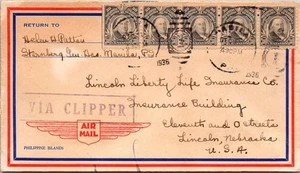 RETURN TO
Helen H. Patten
Sternberg Gen Hos. Manila, P.I.
1936
1936
Lincoln Liberty Life Insurance Co.
Insurance Building
Eleventh and O Streets
Lincoln, Nebraska
U.S.A.
VIA CLIPPER
AIR
MAIL
PHILIPPINE ISLANDS